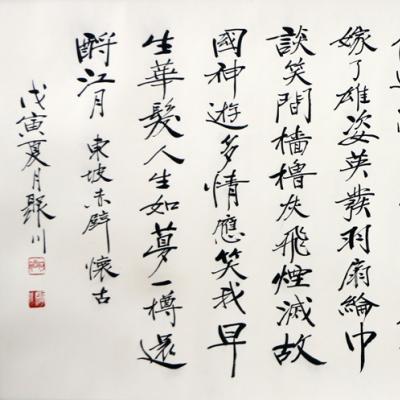 嫁了雄姿英發羽扇綸巾
談笑間檣櫓灰飛煙滅故
國神遊多情應笑我早
生華髮人生如夢一樽還
酹江月 東坡赤壁懷古
戊寅夏月聚川